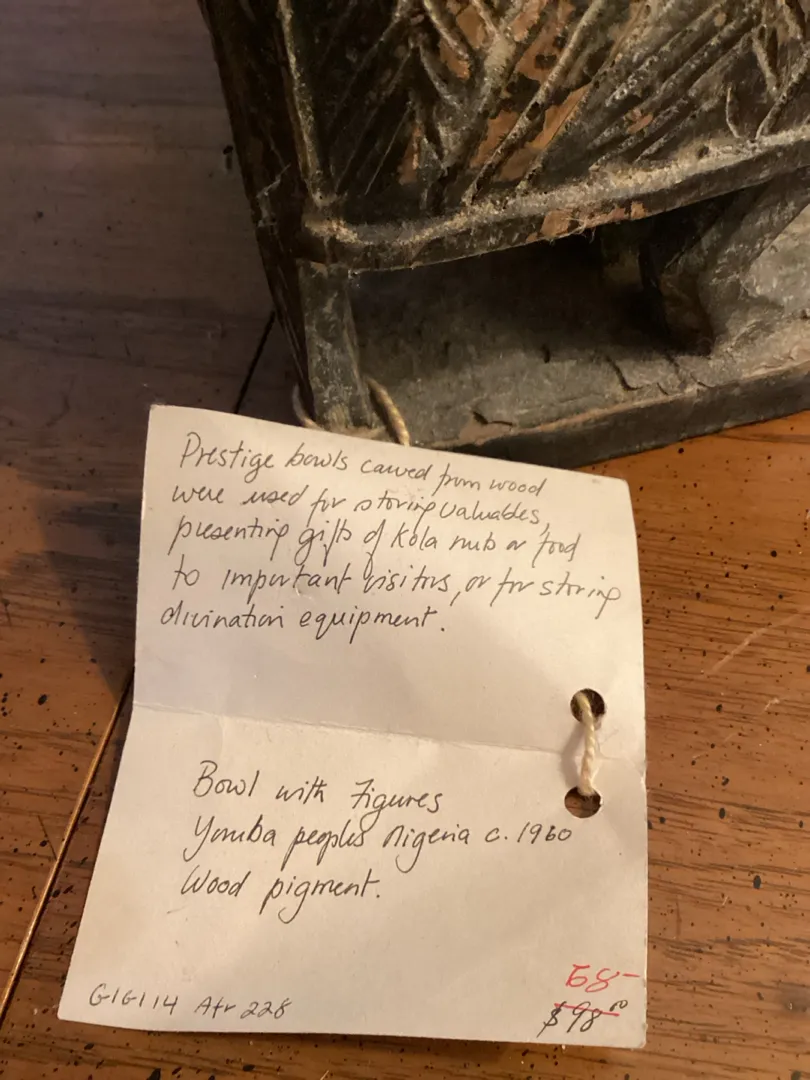 Prestige bowls carved from wood
were used for storing valuables,
presenting gifts of kola nuts or food
to important visitors, or for storing
divination equipment.
Bowl with Figures
Yoruba peoples Nigeria c. 1960
Wood pigment.
68-
G1G114 Afr 228
$98.00